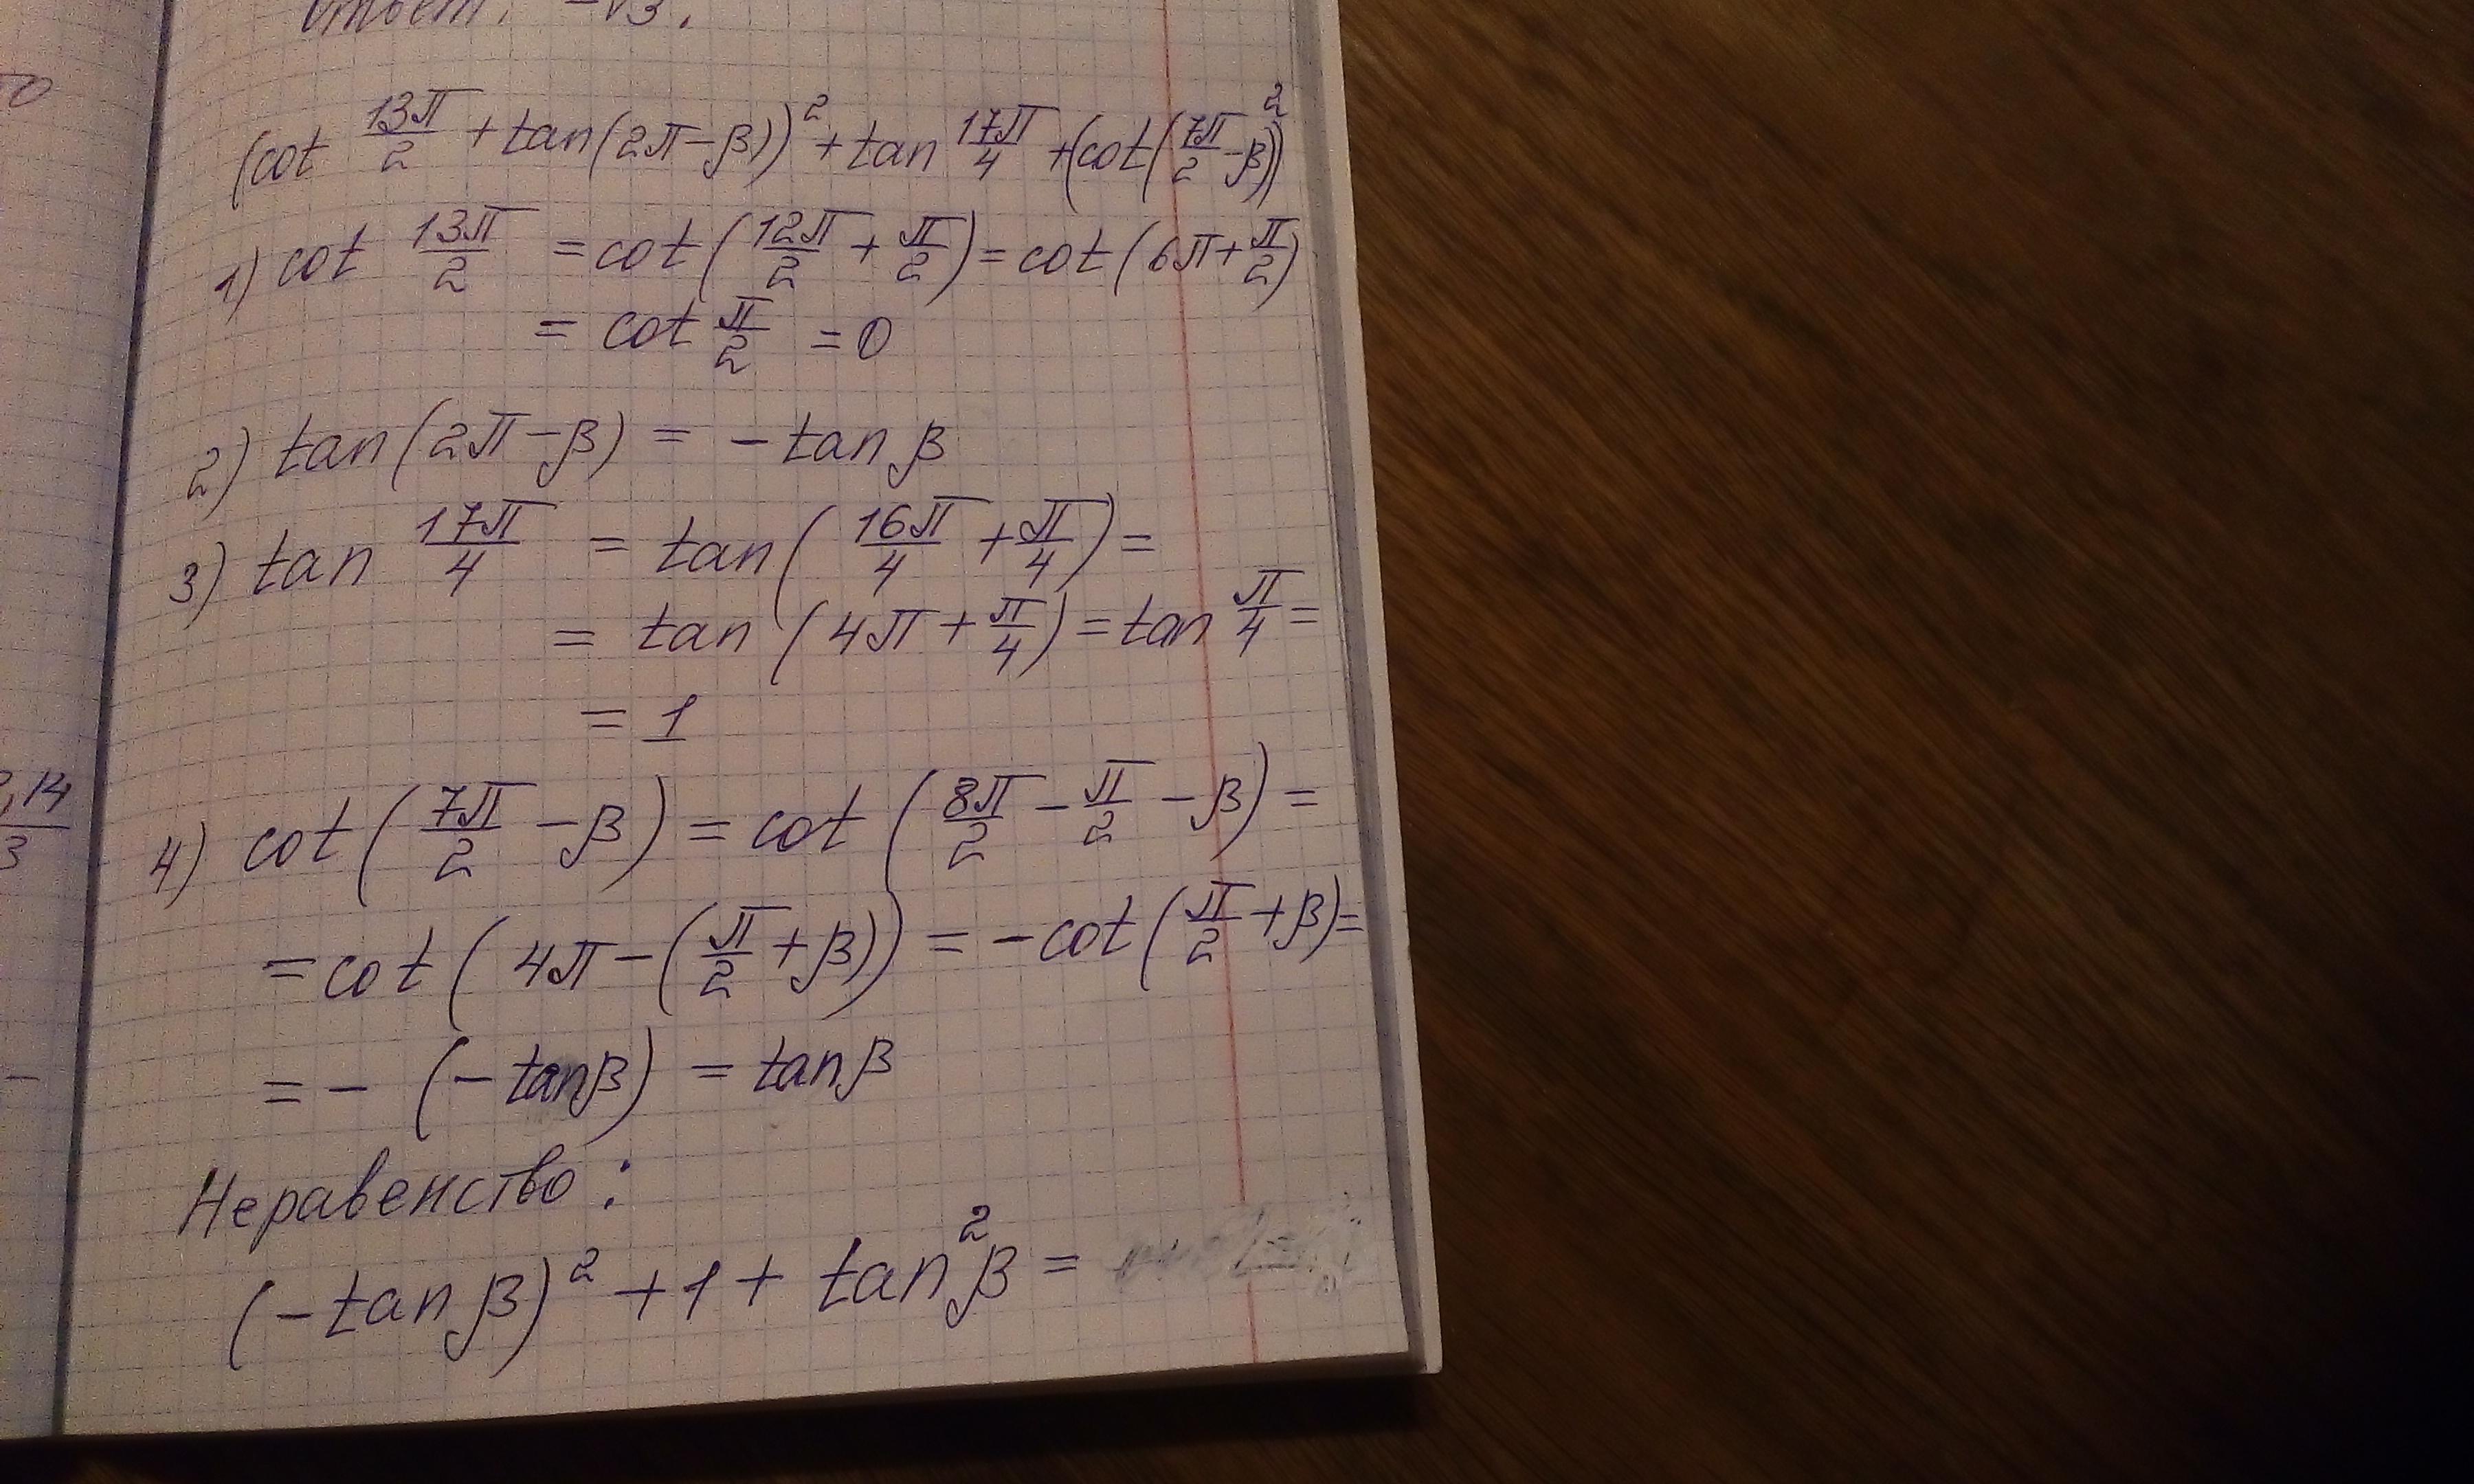 Ответ: -√3.
(cot 13π/2 + tan(2π-β))² + tan 17π/4 + (cot(7π/2 - β))²
1) cot 13π/2 = cot(12π/2 + π/2) = cot(6π + π/2)
= cot π/2 = 0
2) tan(2π-β) = - tan β
3) tan 17π/4 = tan(16π/4 + π/4) =
= tan(4π + π/4) = tan π/4 =
= 1
4) cot(7π/2 - β) = cot(8π/2 - π/2 - β) =
= cot(4π - (π/2 + β)) = - cot(π/2 + β) =
= - (- tanβ) = tanβ
Неравенство:
(- tan β)² + 1 + tan²β =
,14
3